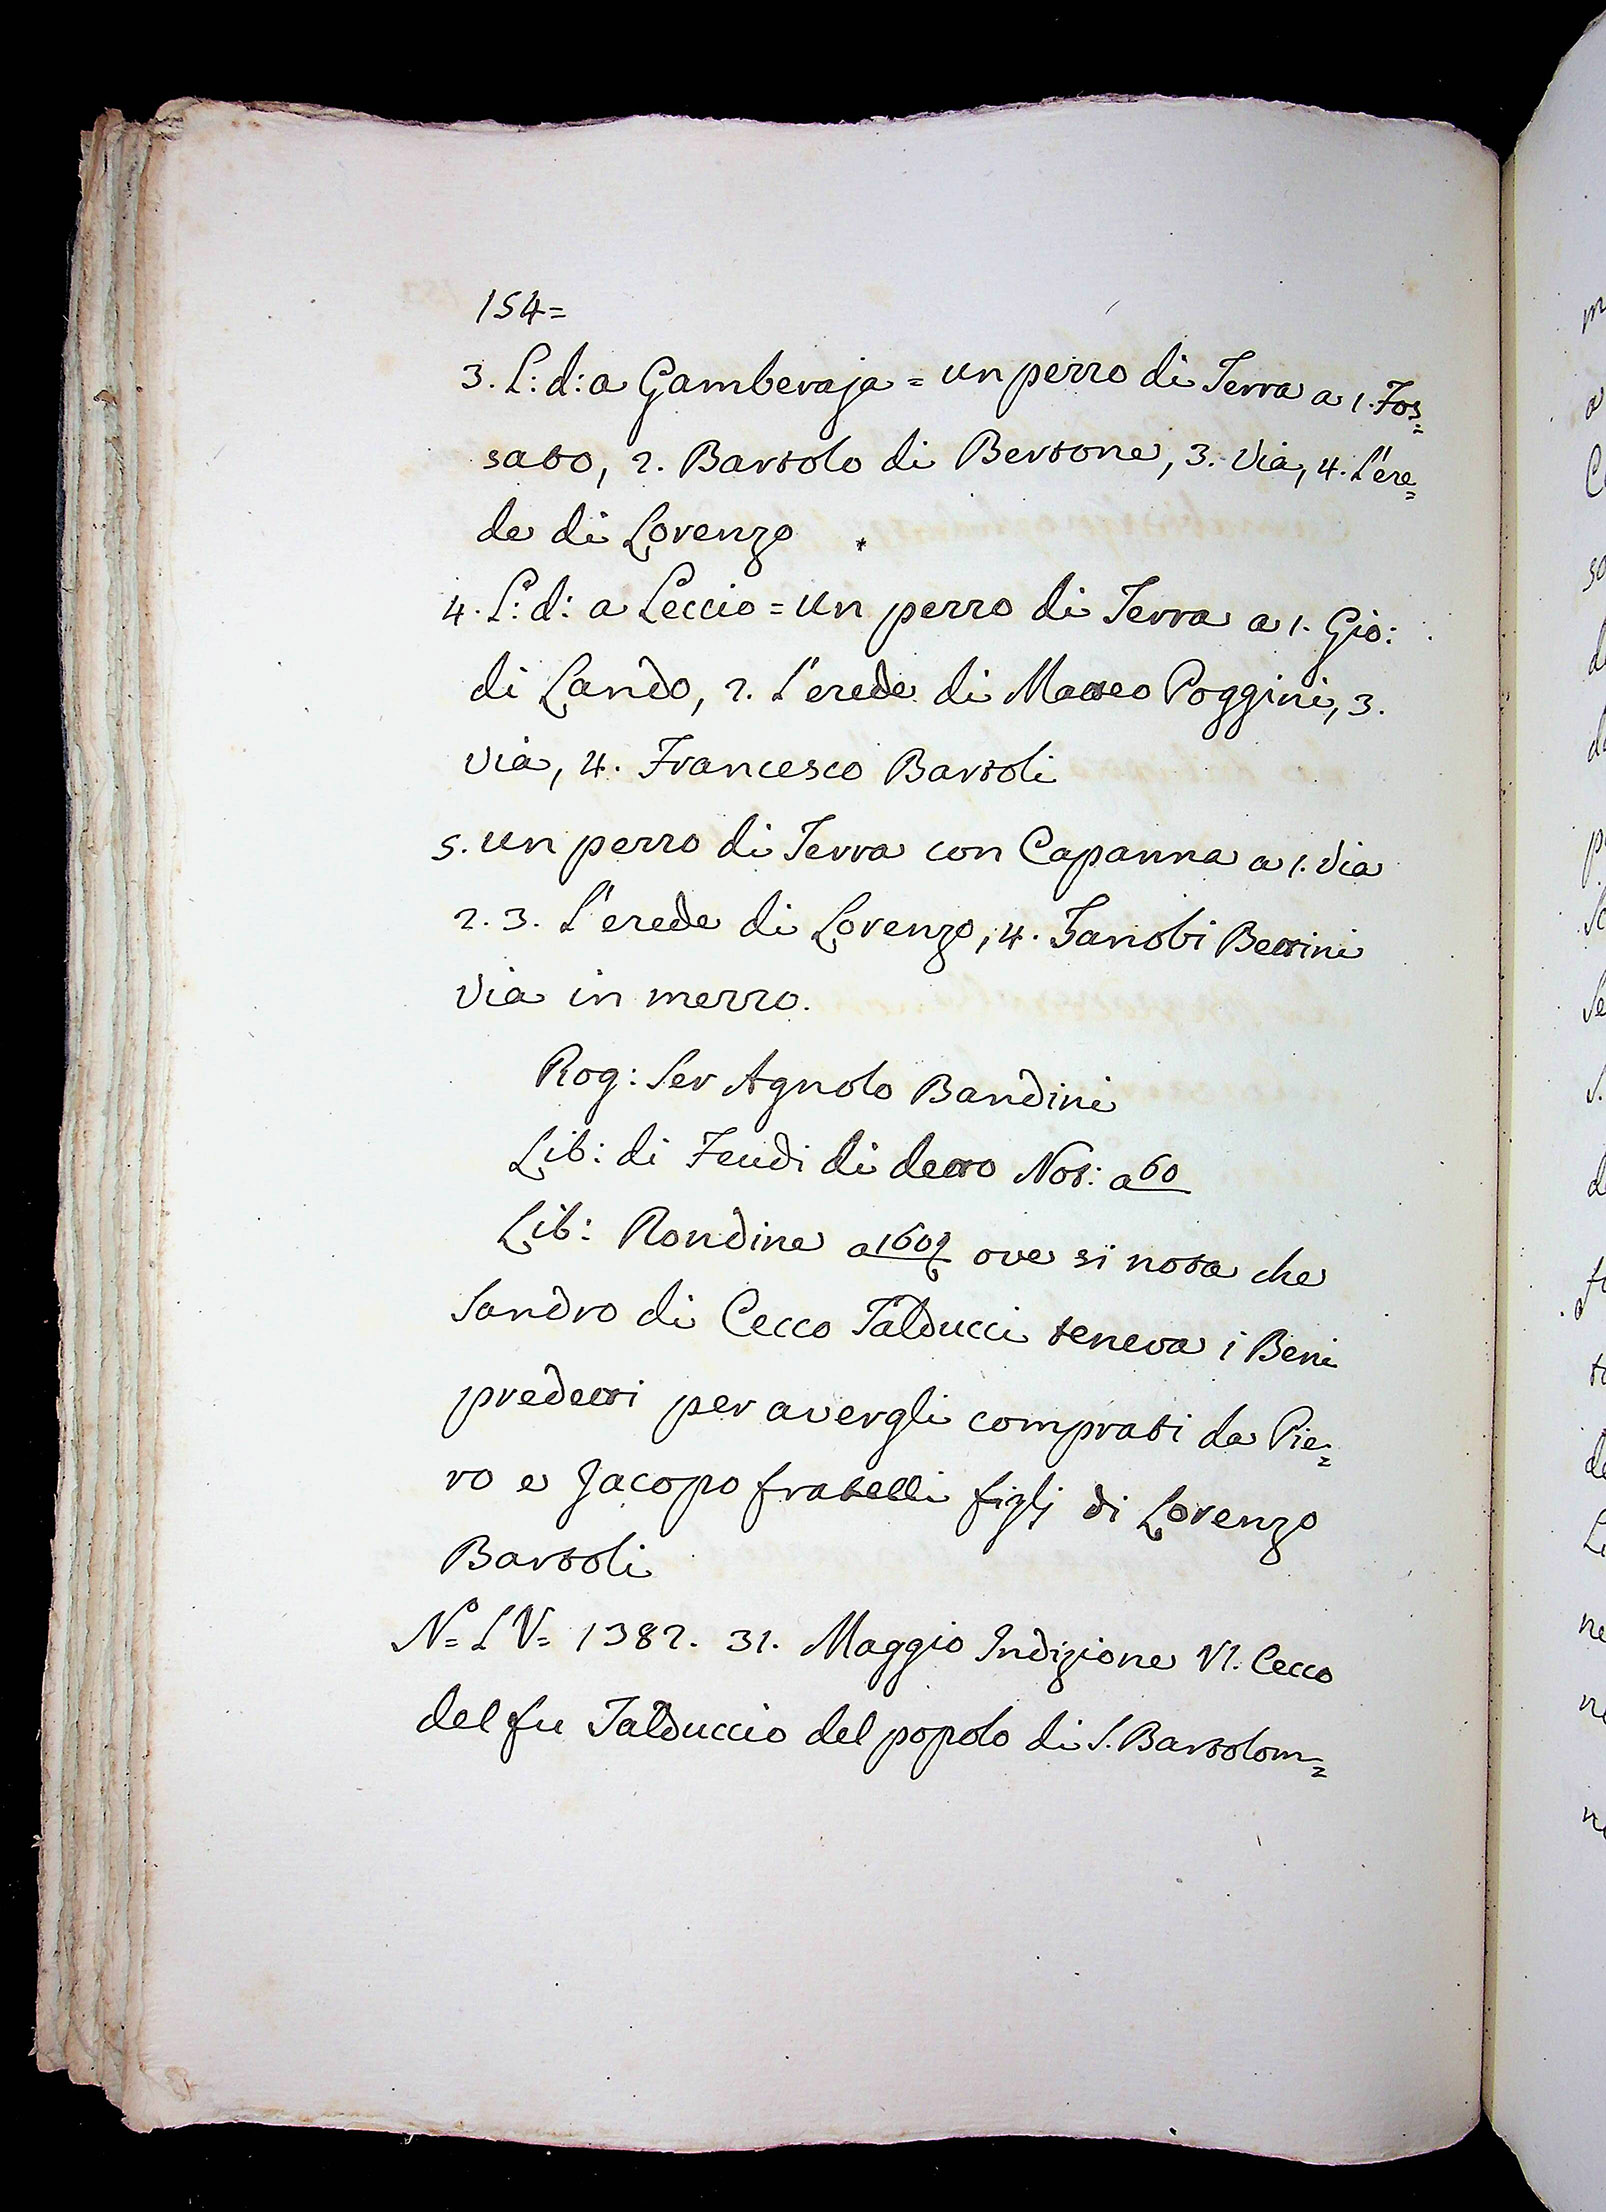 154=
3. L: d: a Gamberaja = un pezzo di Terra a 1. Fos=
sato, 2. Bartolo di Bertone, 3. Via, 4. L'ere=
de di Lorenzo
4. L: d: a Leccio = un pezzo di Terra a 1. Gio:
di Lando, 2. L'erede di Matteo Poggini, 3.
via, 4. Francesco Bartoli
5. un pezzo di Terra con Capanna a 1. Via
2. 3. L'erede di Lorenzo, 4. Zanobi Bettini
Via in mezzo.
Rog: Ser Agnolo Bandini
Lib: di Feudi di detto Not: a 60
Lib: Rondine a 160 ove si nota che
Sandro di Cecco Talducci teneva i Beni
predetti per avergli comprati da Pie=
ro e Jacopo fratelli figlj di Lorenzo
Bartoli
N.o LV= 1382. 31. Maggio Indizione VI. Cecco
del fu Talduccio del popolo di S. Bartolom=